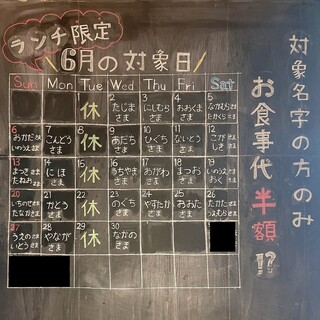 ランチ限定
6月の対象日
対象名字の方のみ
お食事代半額!?
Sun Mon Tue Wed Thu Fri Sat
休
2 たじまさま
3 にしむらさま
4 おおくまさま
5
6 おかださま いのうえさま
7 こんどうさま
8 休
9 あだちさま
10 ひぐちさま
11 ないとうさま
12 こがさま
13
14 にほさま
15 休
16 うちやまさま
17 おがわさま
18 まつおさま
19 いわおさま
20 いちのせさま たなかさま
21 かとうさま
22 休
23 のぐちさま
24 やすたかさま
25 おおたさま
26
27 うえのさま いとうさま
28 やながさま
29 休
30 ながのさま